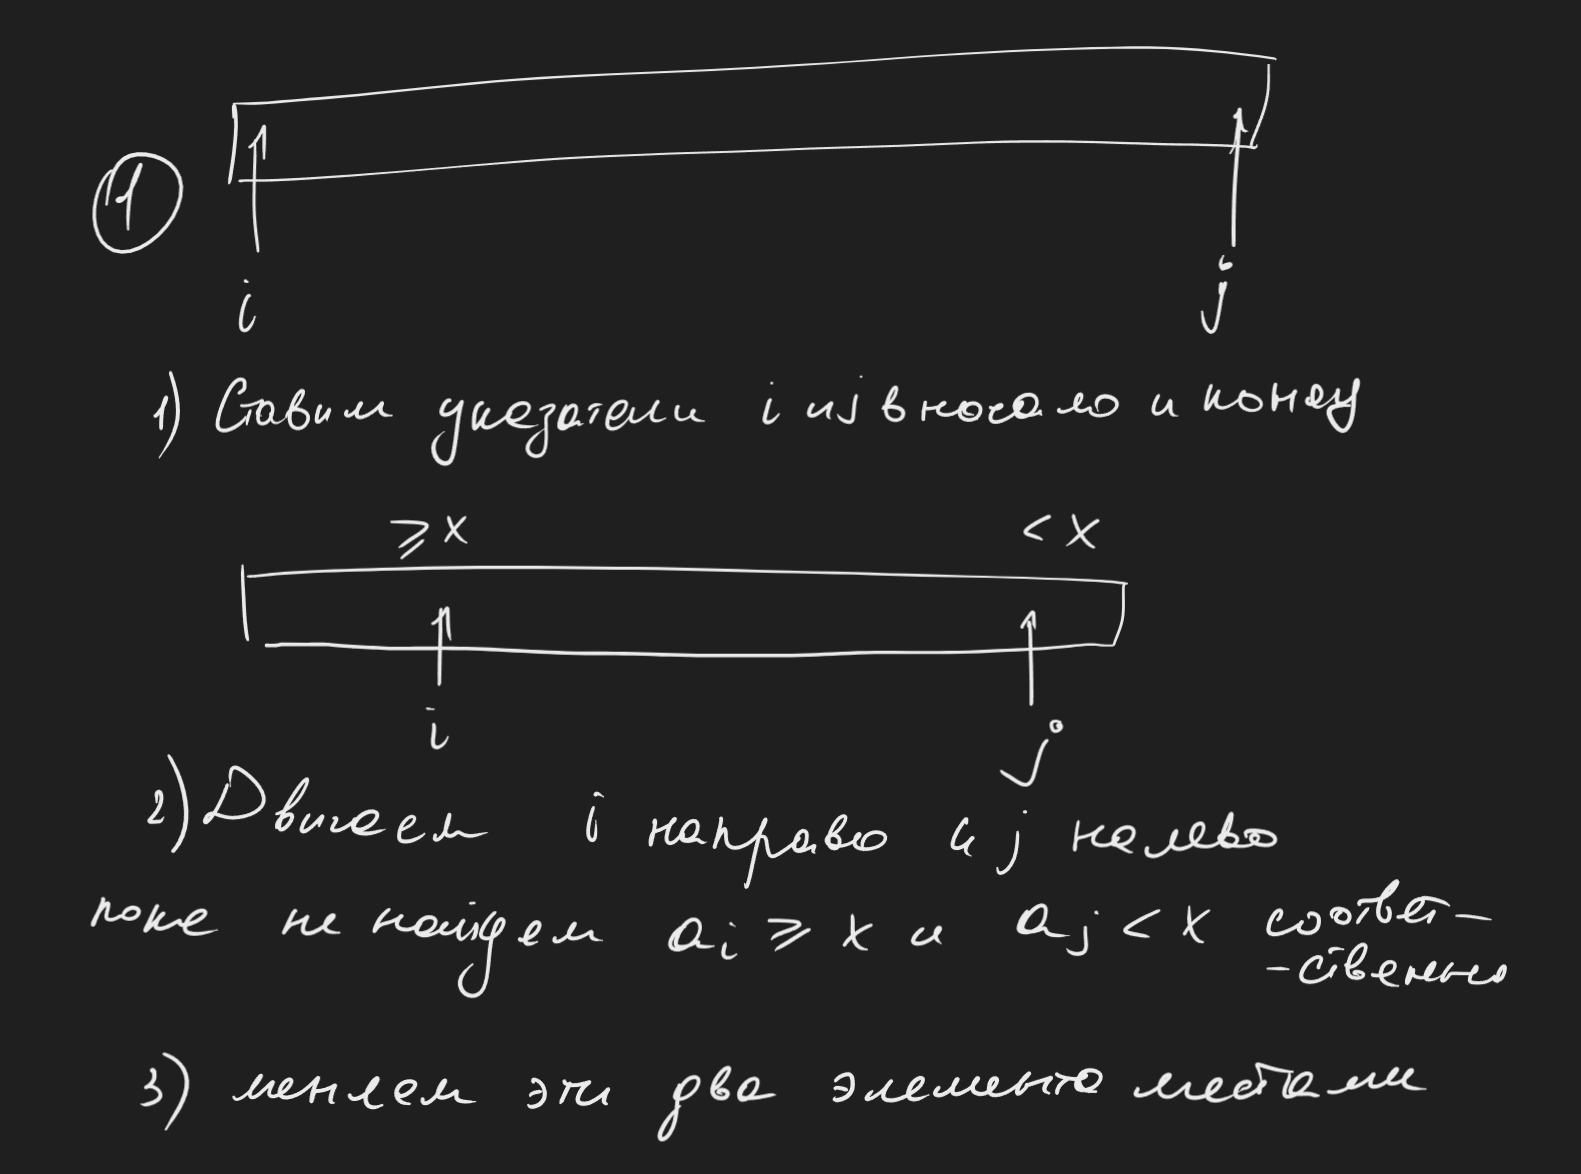 1
i j
1) Ставим указатели i и j в начало и конец
≥ x < x
i j
2) Двигаем i направо и j налево
пока не найдем aᵢ ≥ x и aⱼ < x соответ-
-ственно
3) меняем эти два элемента местами